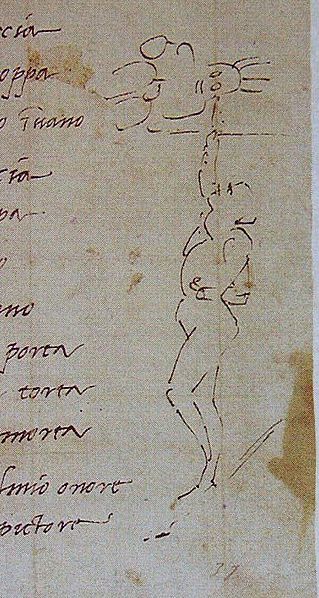 ecia
oppa
o īvano
cia
pa
o
ano
porta
torta
morta
l mio onore
pictore